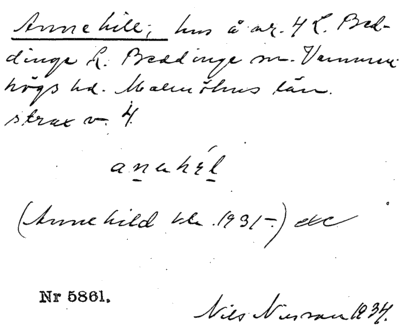 Annehill, hus å nr. 4 L. Bed-
dinge L. Beddinge sn. Vemmen-
högs hd. Malmöhus län.
strax v. 4.
anahíl
(Annehild kk. 1931-)
Nr 5861.
Nils Nilsson 1934.